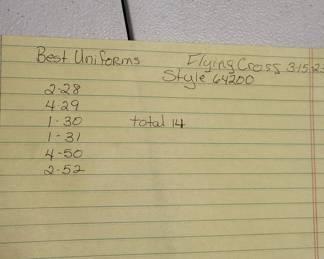 Best Uniforms Flying Cross 3.15.2
Style 64200
2-28
4-29
1-30 total 14
1-31
4-50
2-52